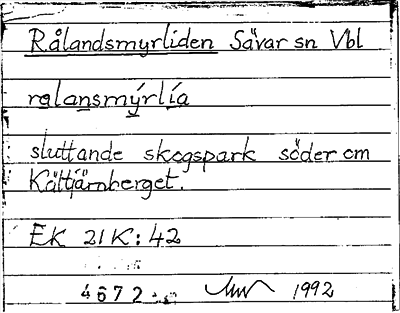 Rålandsmyrliden Sävar sn Vbl
ralansmýrlía
sluttande skogspark söder om
Kåltjärnberget.
EK 21K:42
4672 1992